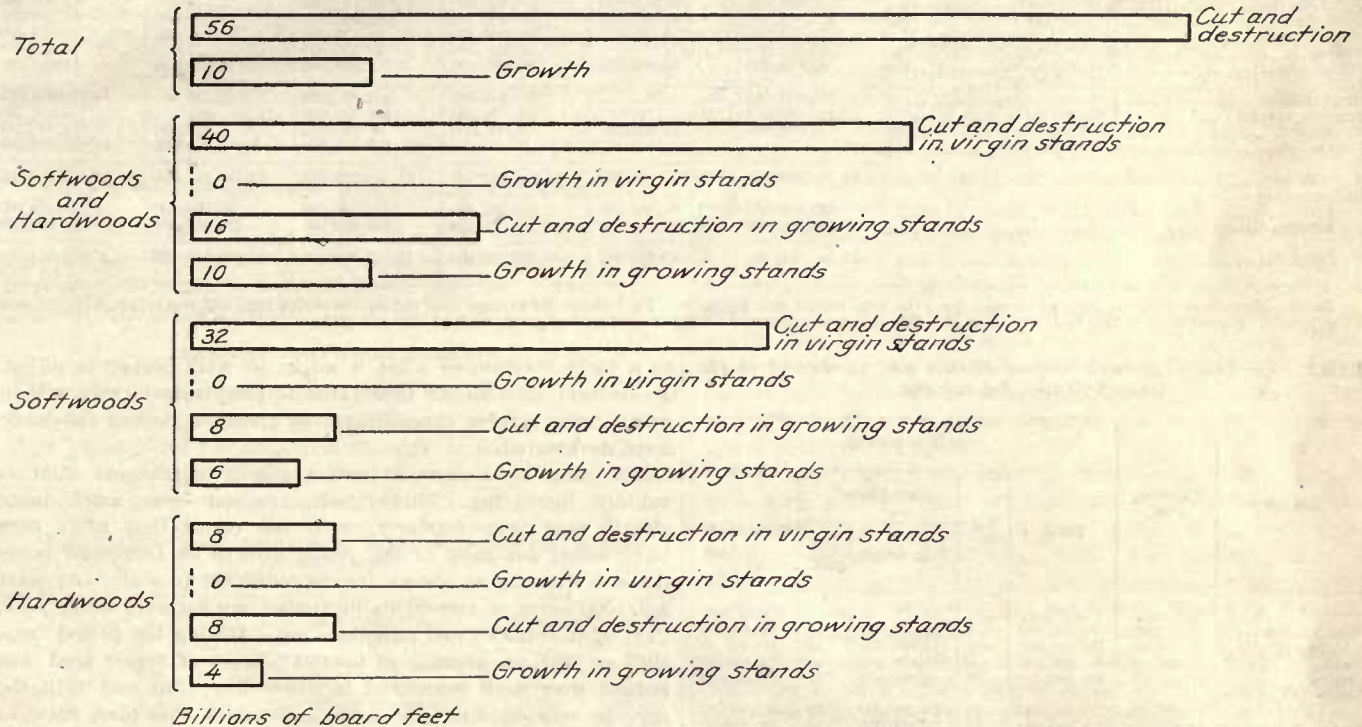 Total
56 Cut and
destruction
10 Growth
Softwoods
and
Hardwoods
40 Cut and destruction
in virgin stands
0 Growth in virgin stands
16 Cut and destruction in growing stands
10 Growth in growing stands
Softwoods
32 Cut and destruction
in virgin stands
0 Growth in virgin stands
8 Cut and destruction in growing stands
6 Growth in growing stands
Hardwoods
8 Cut and destruction in virgin stands
0 Growth in virgin stands
8 Cut and destruction in growing stands
4 Growth in growing stands
Billions of board feet